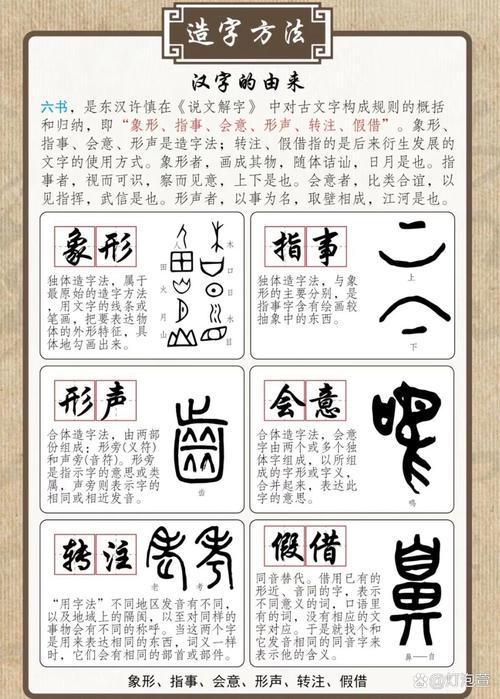 造字方法
汉字的由来
六书，是东汉许慎在《说文解字》中对古文字构成规则的概括
和归纳，即“象形、指事、会意、形声、转注、假借”。象形、
指事、会意、形声是造字法；转注、假借指的是后来衍生发展的
文字的使用方式。象形者，画成其物，随体诘讪，日月是也。指
事者，视而可识，察而见意，上下是也。会意者，比类合谊，以
见指挥，武信是也。形声者，以事为名，取壁相成，江河是也。
象形
独体造字法，属于
最原始的造字方法
，用文字的线条或
笔画，把要表达物
体的外形特征，具
体地勾画出来。
人
田
火
月
山
木
口
日
水
指事
独体造字法，与象
形的主要分别，是
指事字含有绘画较
抽象中的东西。
上
下
形声
合体造字法，由两部
份组成：形旁(义符)
和声旁(音符)。形旁
是指示字的意思或类
属，声旁则表示字的
相同或相近发音。
齿
会意
合体造字法，会意
字由两个或多个独
体字组成，以所组
成的字形或字义，
合并起来，表达此
字的意思。
鸣
转注
老
考
“用字法”不同地区发音有不同，
以及地域上的隔阂，以至对同样的
事物会有不同的称呼。当这两个字
是用来表达相同的东西，词义一样
时，它们会有相同的部首或部件。
假借
同音替代。借用已有的
形近、音同的字，表示
不同意义的词，口语里
有的词，没有相应的文
字对应。于是就找个和
它发音相同的同音字来
表示他的含义。
鼻——自
象形、指事、会意、形声、转注、假借